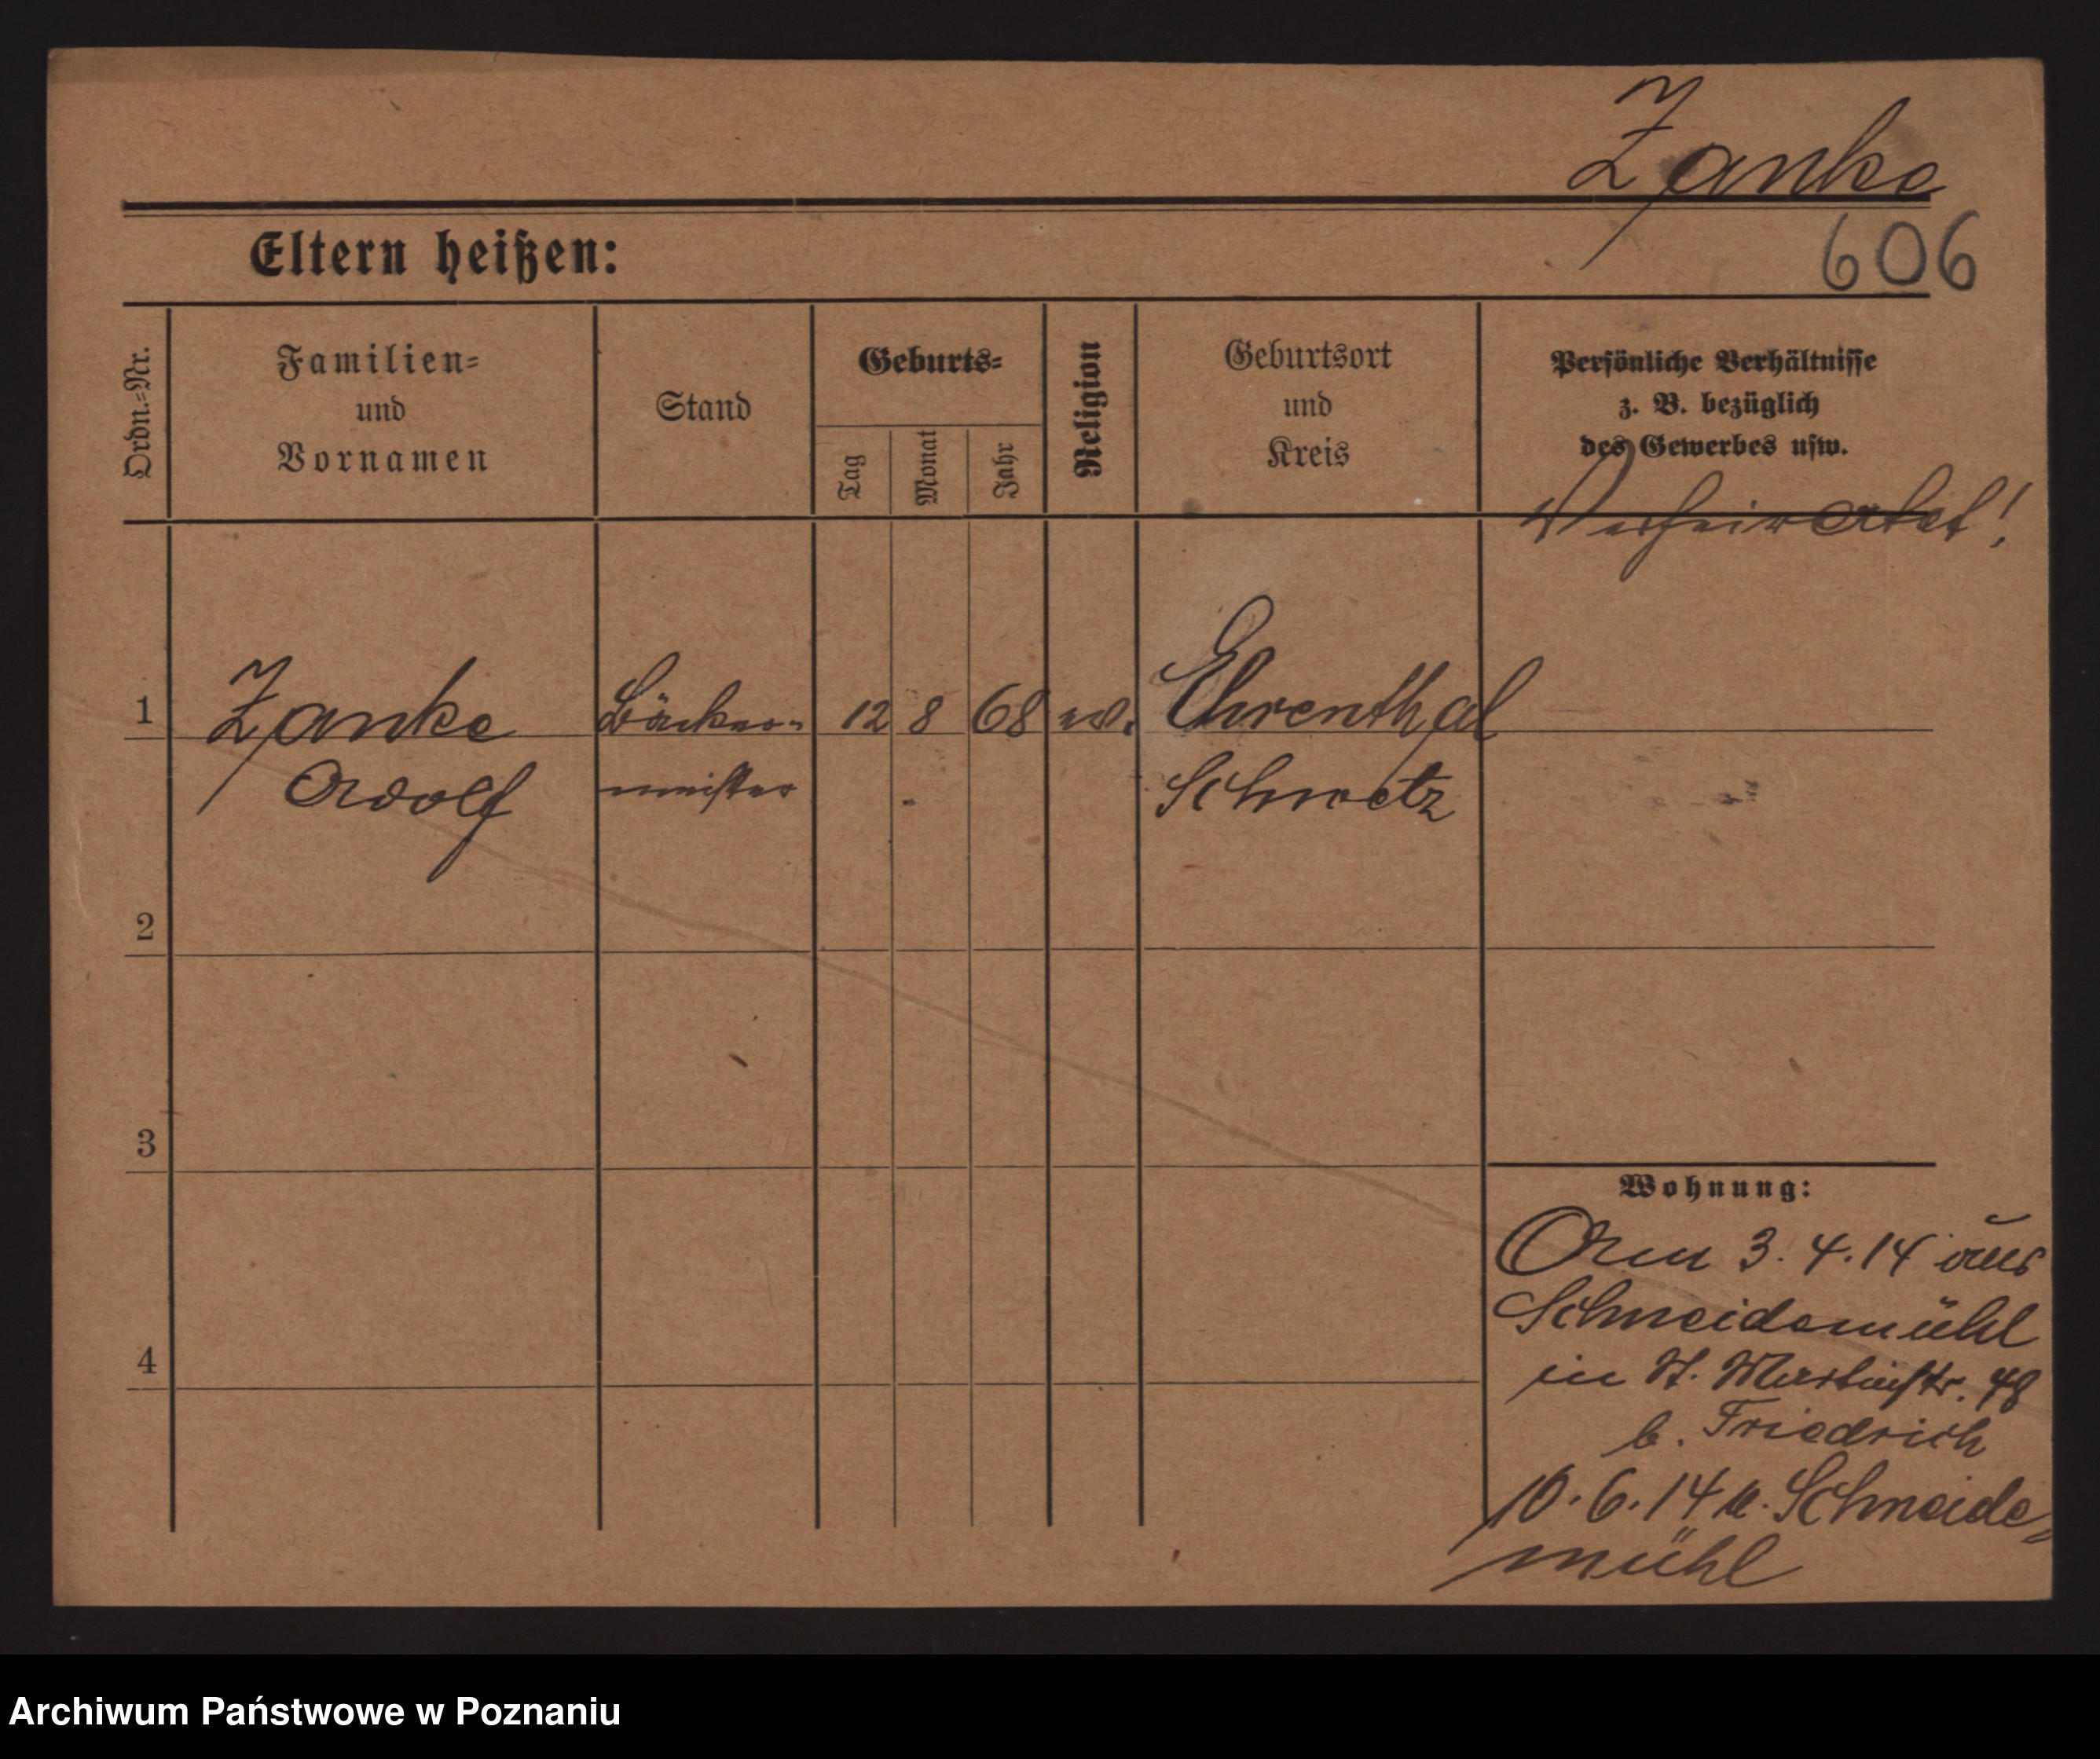 Zanke
Eltern heißen:
606
Ordn.-Nr.
Familien-
und
Vornamen
Stand
Geburts-
Tag
Monat
Jahr
Religion
Geburtsort
und
Kreis
Persönliche Verhältnisse
z. B. bezüglich
des Gewerbes usw.
Verheiratet!
1
Zanke
Adolf
Bäcker-
meister
12
8
68
ev.
Ehrenthal
Schwetz
2
3
4
Wohnung:
Am 3. 4. 14 aus
Schneidemühl
in St. Martinstr. 48
b. Friedrich
10. 6. 14 n. Schneide-
mühl
Archiwum Państwowe w Poznaniu